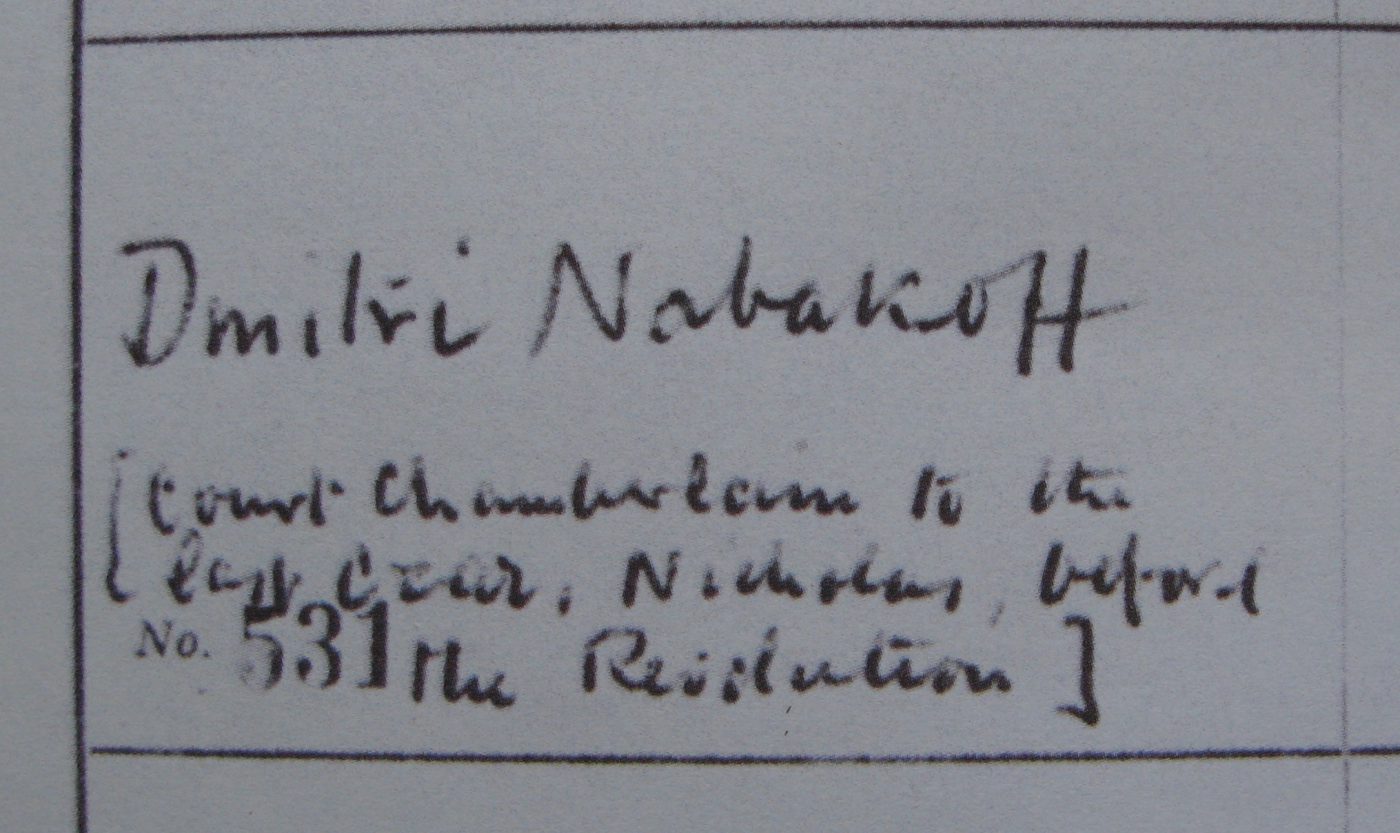 Dmitri Nabakoff
[Court Chamberlain to the
last Czar, Nicholas, before
No. 531 the Revolution]